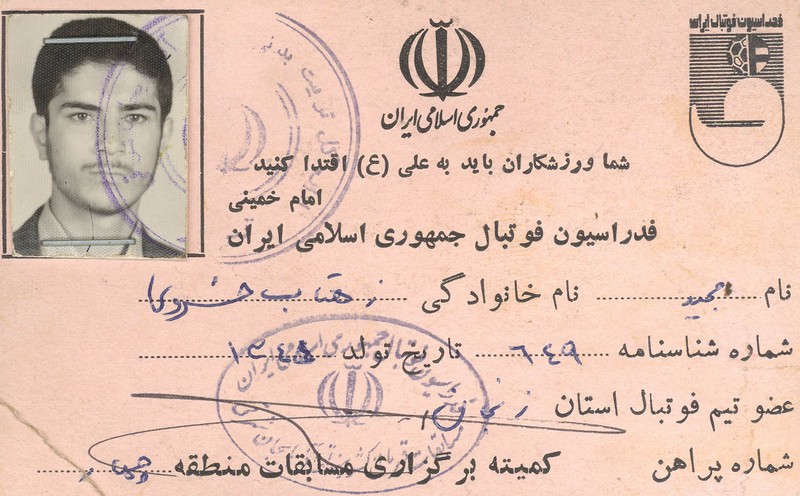 فدراسیون فوتبال ایران
جمهوری اسلامی ایران
شما ورزشکاران باید به علی (ع) اقتدا کنید
امام خمینی
فدراسیون فوتبال جمهوری اسلامی ایران
نام مجید نام خانوادگی
شماره شناسنامه ۶۴۹ تاریخ تولد
عضو تیم فوتبال استان زنجان
شماره پراهن کمیته برگزاری مسابقات منطقه